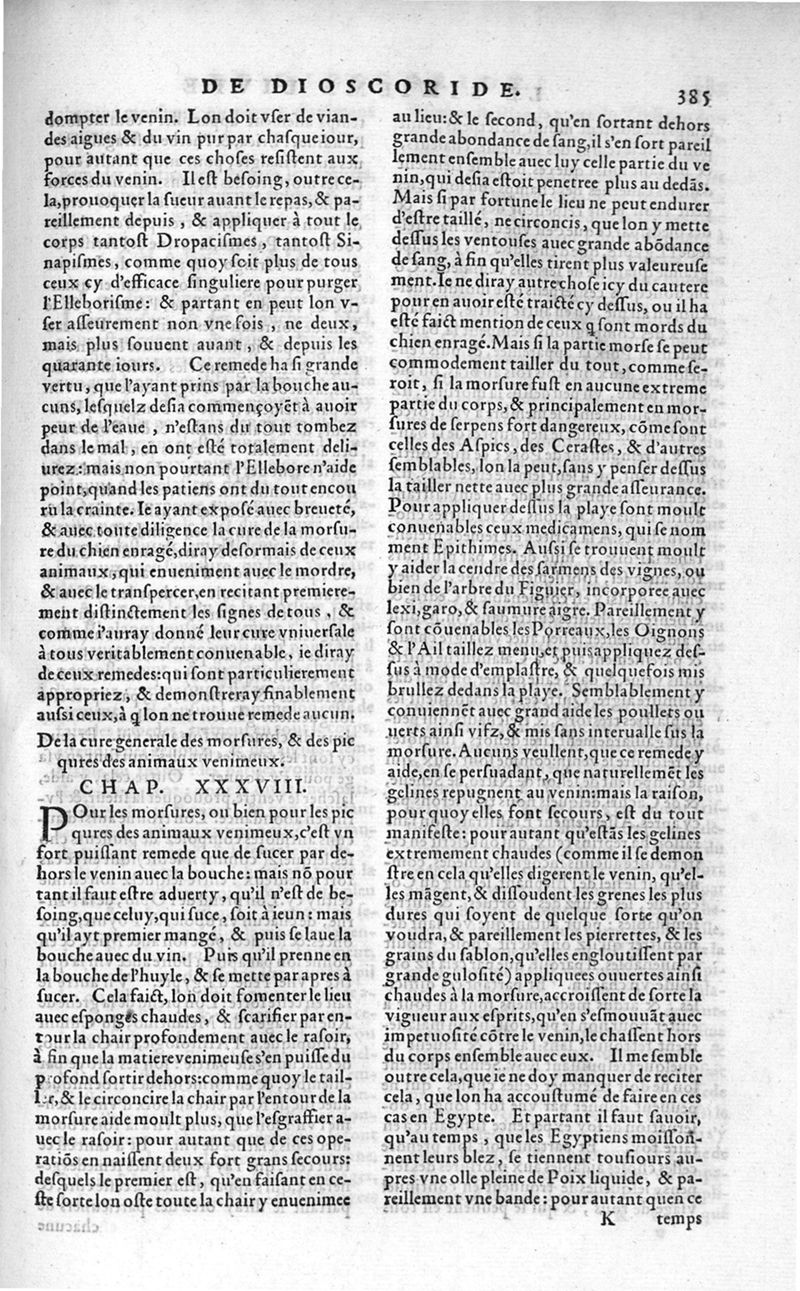 DE DIOSCORIDE.
385
dompter le venin. Lon doit vſer de vian-
des aigues & du vin pur par chaſque iour,
pour autant que ces choſes reſiſtent aux
forces du venin. Il eſt beſoing, outre ce-
la, prouoquer la ſueur auant le repas, & pa-
reillement depuis, & appliquer à tout le
corps tantoſt Dropaciſmes, tantoſt Si-
napiſmes, comme quoy ſoit plus de tous
ceux cy d'efficace ſinguliere pour purger
l'Elleboriſme: & partant en peut lon v-
ſer aſſeurement non vne fois, ne deux,
mais plus ſouuent auant, & depuis les
quarante iours. Ce remede ha ſi grande
vertu, que l'ayant prins par la bouche au-
cuns, leſquelz deſia commençoyẽt à auoir
peur de l'eaue, n'eſtans du tout tombez
dans le mal, en ont eſté totalement deli-
urez: mais non pourtant l'Ellebore n'aide
point, quand les patiens ont du tout encou
ru la crainte. Ie ayant expoſé auec breueté,
& auec toute diligence la cure de la morſu-
re du chien enragé, diray deſormais de ceux
animaux, qui enueniment auec le mordre,
& auec le tranſpercer, en recitant premiere-
ment diſtinctement les ſignes de tous, &
comme i'auray donné leur cure vniuerſale
à tous veritablement conuenable, ie diray
de ceux remedes: qui ſont particulierement
appropriez, & demonſtreray finablement
auſsi ceux, à q̃ lon ne trouue remede aucun.
De la cure generale des morſures, & des pic
qures des animaux venimeux.
CHAP. XXXVIII.
POur les morſures, ou bien pour les pic
qures des animaux venimeux, c'eſt vn
fort puiſſant remede que de ſucer par de-
hors le venin auec la bouche: mais nõ pour
tant il faut eſtre aduerty, qu'il n'eſt de be-
ſoing, que celuy, qui ſuce, ſoit à ieun: mais
qu'il ayt premier mangé, & puis ſe laue la
bouche auec du vin. Puis qu'il prenne en
la bouche de l'huyle, & ſe mette par apres à
ſucer. Cela faict, lon doit fomenter le lieu
auec eſponges chaudes, & ſcarifier par en-
tour la chair profondement auec le raſoir,
à fin que la matiere venimeuſe s'en puiſſe du
profond ſortir dehors: comme quoy le tail-
ler, & le circoncire la chair par l'entour de la
morſure aide moult plus, que l'eſgraffier a-
uec le raſoir: pour autant que de ces ope-
ratiõs en naiſſent deux fort grans ſecours:
deſquels le premier eſt, qu'en faiſant en ce-
ſte ſorte lon oſte toute la chair y enuenimee
au lieu: & le ſecond, qu'en ſortant dehors
grande abondance de ſang, il s'en ſort pareil
lement enſemble auec luy celle partie du ve
nin, qui deſia eſtoit penetree plus au dedãs.
Mais ſi par fortune le lieu ne peut endurer
d'eſtre taillé, ne circoncis, que lon y mette
deſſus les ventouſes auec grande abõdance
de ſang, à fin qu'elles tirent plus valeureuſe
ment. Ie ne diray autre choſe icy du cautere
pour en auoir eſté traicté cy deſſus, ou il ha
eſté faict mention de ceux q̃ ſont mords du
chien enragé. Mais ſi la partie morſe ſe peut
commodement tailler du tout, comme ſe-
roit, ſi la morſure fuſt en aucune extreme
partie du corps, & principalement en mor-
ſures de ſerpens fort dangereux, cõme ſont
celles des Aſpics, des Ceraſtes, & d'autres
ſemblables, lon la peut, ſans y penſer deſſus
la tailler nette auec plus grande aſſeurance.
Pour appliquer deſſus la playe ſont moult
conuenables ceux medicamens, qui ſe nom
ment Epithimes. Auſsi ſe trouuent moult
y aider la cendre des ſarmens des vignes, ou
bien de l'arbre du Figuier, incorporee auec
lexi, garo, & ſaumure aigre. Pareillement y
ſont cõuenables les Porreaux, les Oignons
& l'Ail taillez menu, et puis appliquez deſ-
ſus à mode d'emplaſtre, & quelquefois mis
brullez dedans la playe. Semblablement y
conuiennẽt auec grand aide les poullets ou
uerts ainſi vifz, & mis ſans interualle ſus la
morſure. Aucuns veullent, que ce remede y
aide, en ſe perſuadant, que naturellemẽt les
gelines repugnent au venin: mais la raiſon,
pour quoy elles font ſecours, eſt du tout
manifeſte: pour autant qu'eſtãs les gelines
extremement chaudes (comme il ſe demon
ſtre en cela qu'elles digerent le venin, qu'el-
les mãgent, & diſſoudent les grenes les plus
dures qui ſoyent de quelque ſorte qu'on
voudra, & pareillement les pierrettes, & les
grains du ſablon, qu'elles engloutiſſent par
grande guloſité) appliquees ouuertes ainſi
chaudes à la morſure, accroiſſent de ſorte la
vigueur aux eſprits, qu'en s'eſmouuãt auec
impetuoſité cõtre le venin, le chaſſent hors
du corps enſemble auec eux. Il me ſemble
outre cela, que ie ne doy manquer de reciter
cela, que lon ha accouſtumé de faire en ces
cas en Egypte. Et partant il faut ſauoir,
qu'au temps, que les Egyptiens moiſſoñ-
nent leurs blez, ſe tiennent touſiours au-
pres vne olle pleine de Poix liquide, & pa-
reillement vne bande: pour autant quen ce
K temps